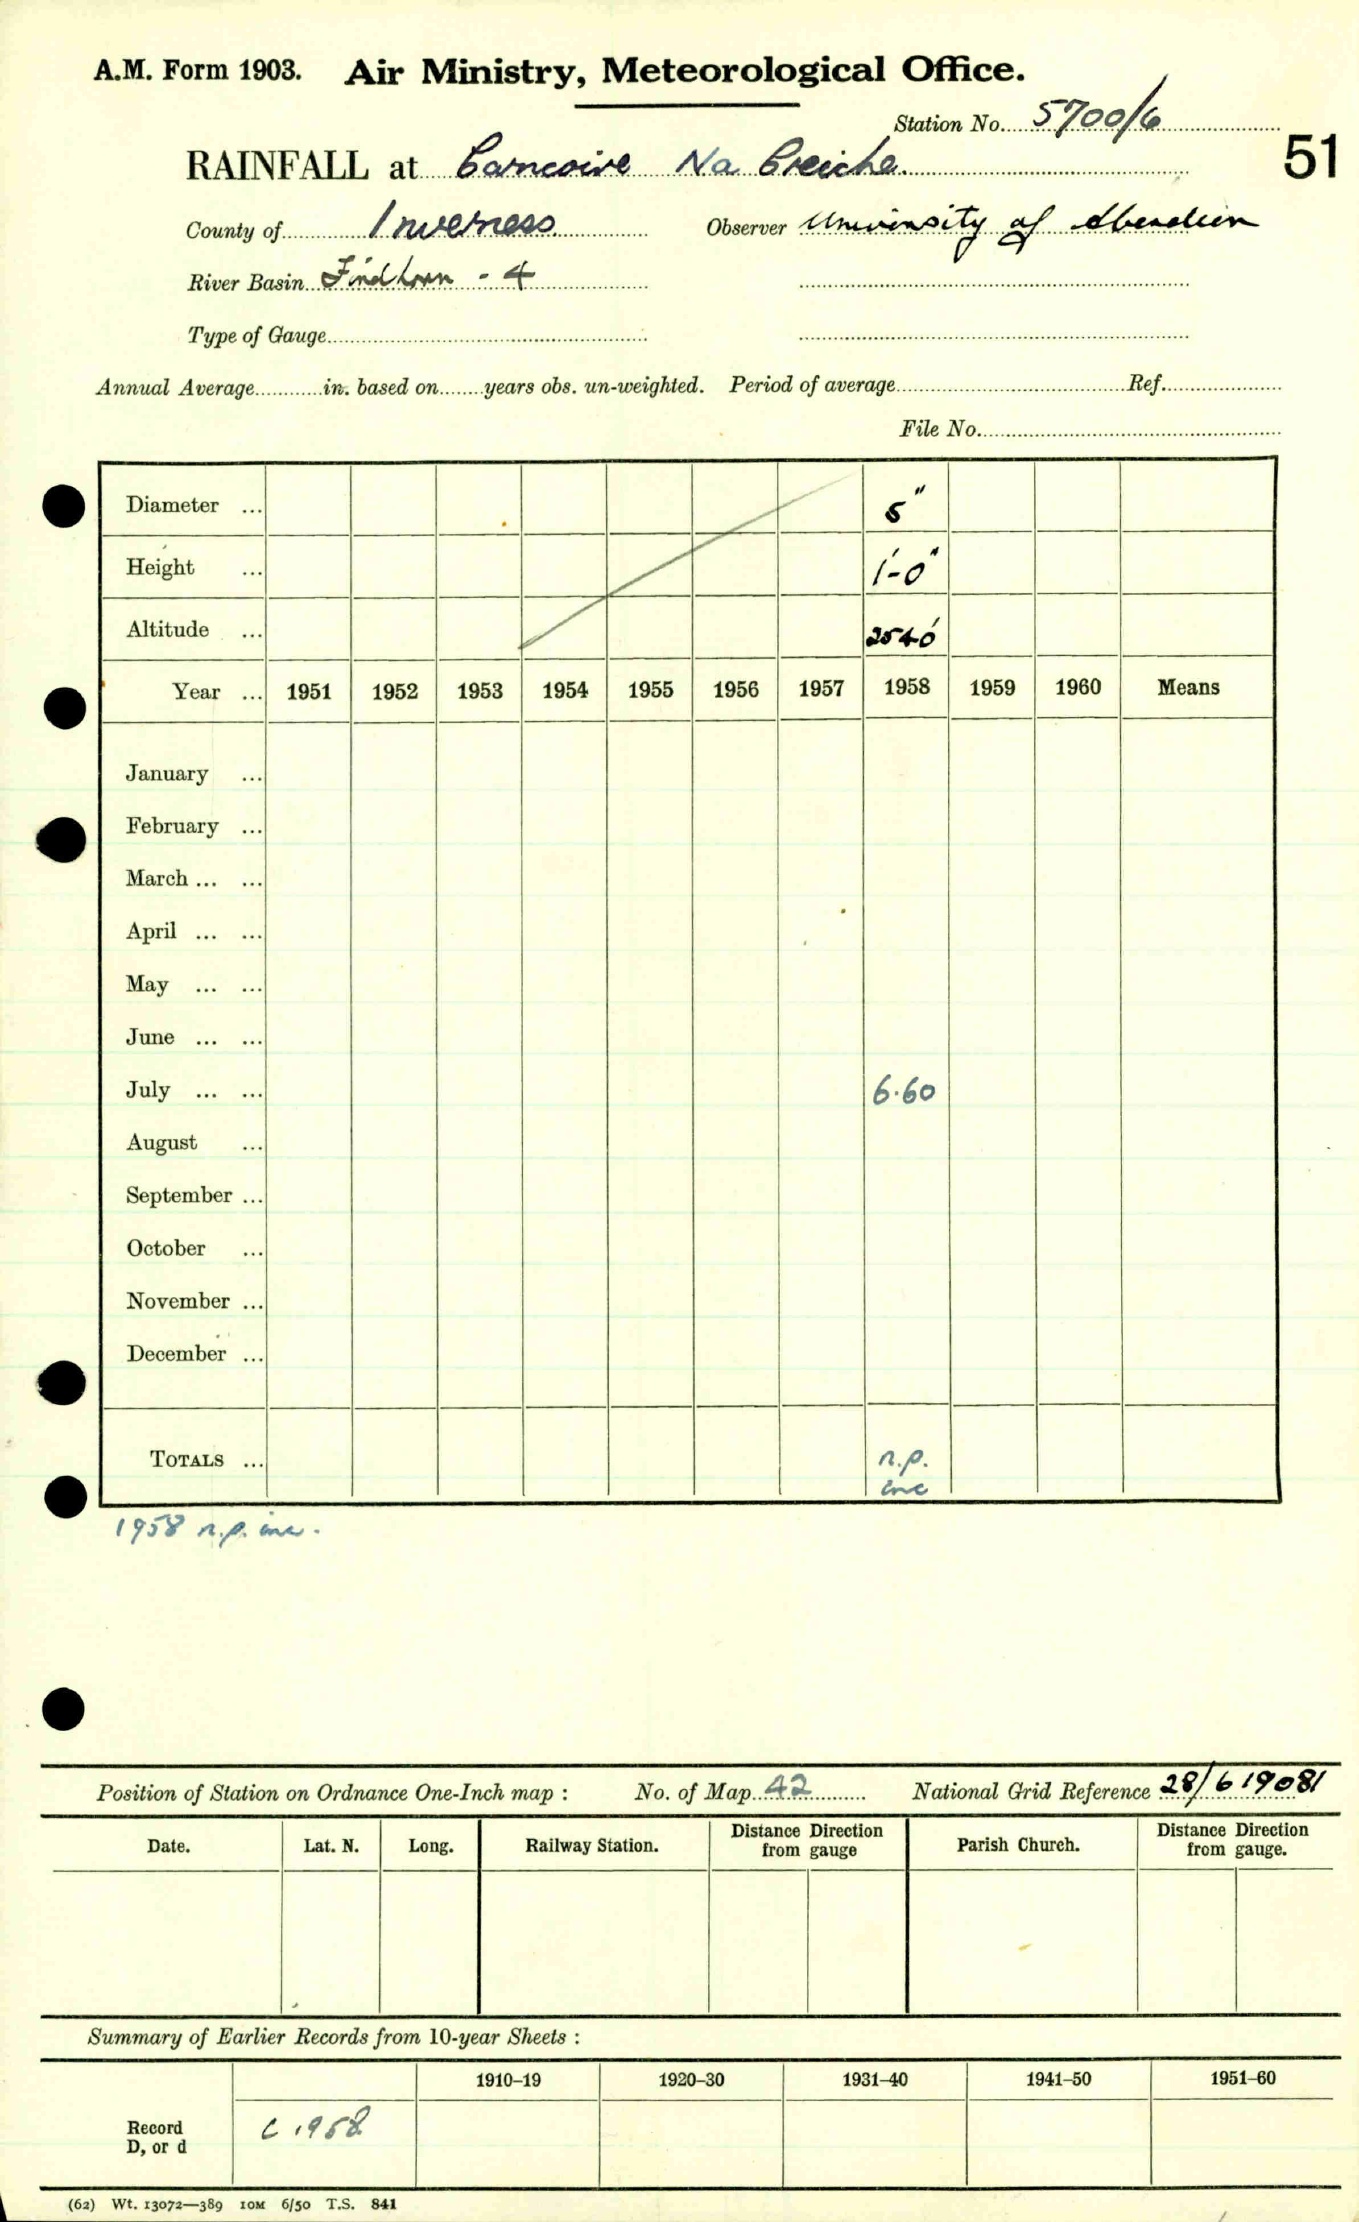 A.M. Form 1903. Air Ministry, Meteorological Office.
Station No. 5700/6
51
RAINFALL at Carncoire Na Creiche.
County of Inverness Observer University of Aberdeen
River Basin Findhorn - 4
Type of Gauge
Annual Average in. based on years obs. un-weighted. Period of average Ref.
File No.
Diameter ... 5"
Height ... 1'-0"
Altitude ... 2540'
Year ... 1951 1952 1953 1954 1955 1956 1957 1958 1959 1960 Means
January ...
February ...
March ... ...
April ... ...
May ... ...
June ... ...
July ... ... 6.60
August ...
September ...
October ...
November ...
December ...
TOTALS ... n.p. inc
1958 n.p. inc.
Position of Station on Ordnance One-Inch map : No. of Map 42 National Grid Reference 28/619081
Date. Lat. N. Long. Railway Station. Distance Direction from gauge Parish Church. Distance Direction from gauge.
Summary of Earlier Records from 10-year Sheets :
1910–19 1920–30 1931–40 1941–50 1951–60
Record D, or d C 1958
(62) Wt. 13072—389 10M 6/50 T.S. 841